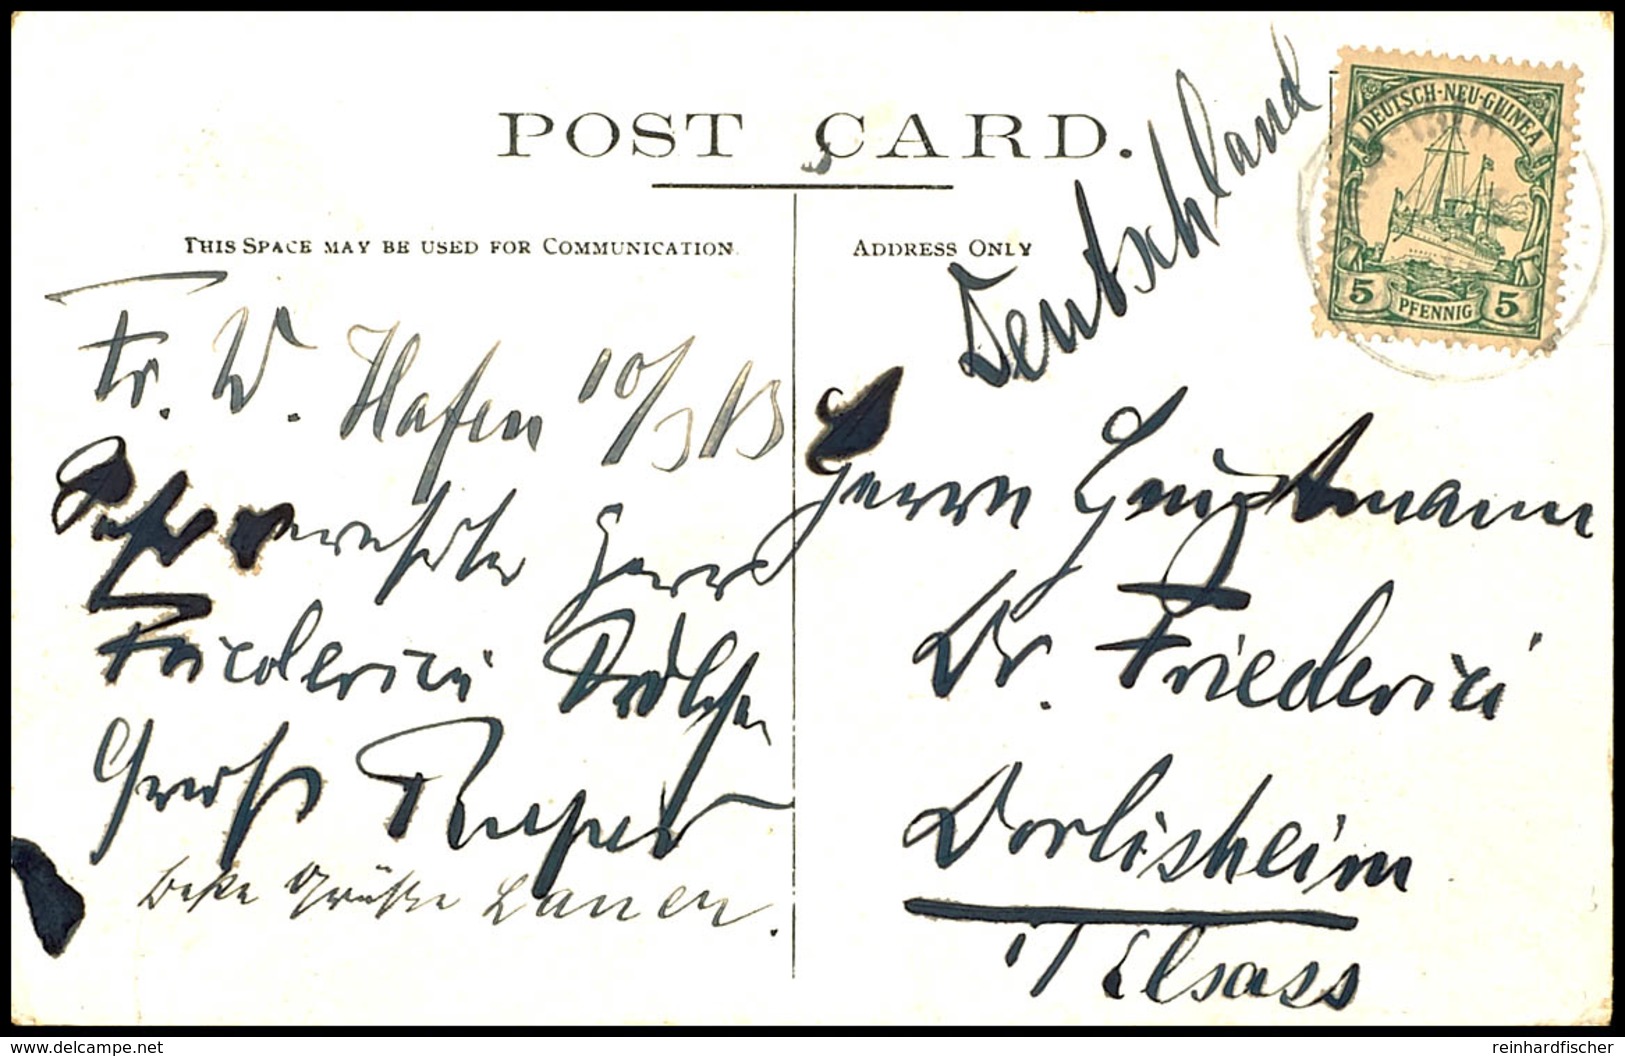 POST CARD.
THIS SPACE MAY BE USED FOR COMMUNICATION.
ADDRESS ONLY
DEUTSCH-NEU-GUINEA
5 PFENNIG 5
Fr. W. Hafen 10/3 13
Sehr verehrter Herr
Friederici
Gruß
Beste Grüße
Deutschland
Herrn Hauptmann
Dr. Friederici
Dorlisheim
i/Elsass
delcampe.net
reinhardfischer